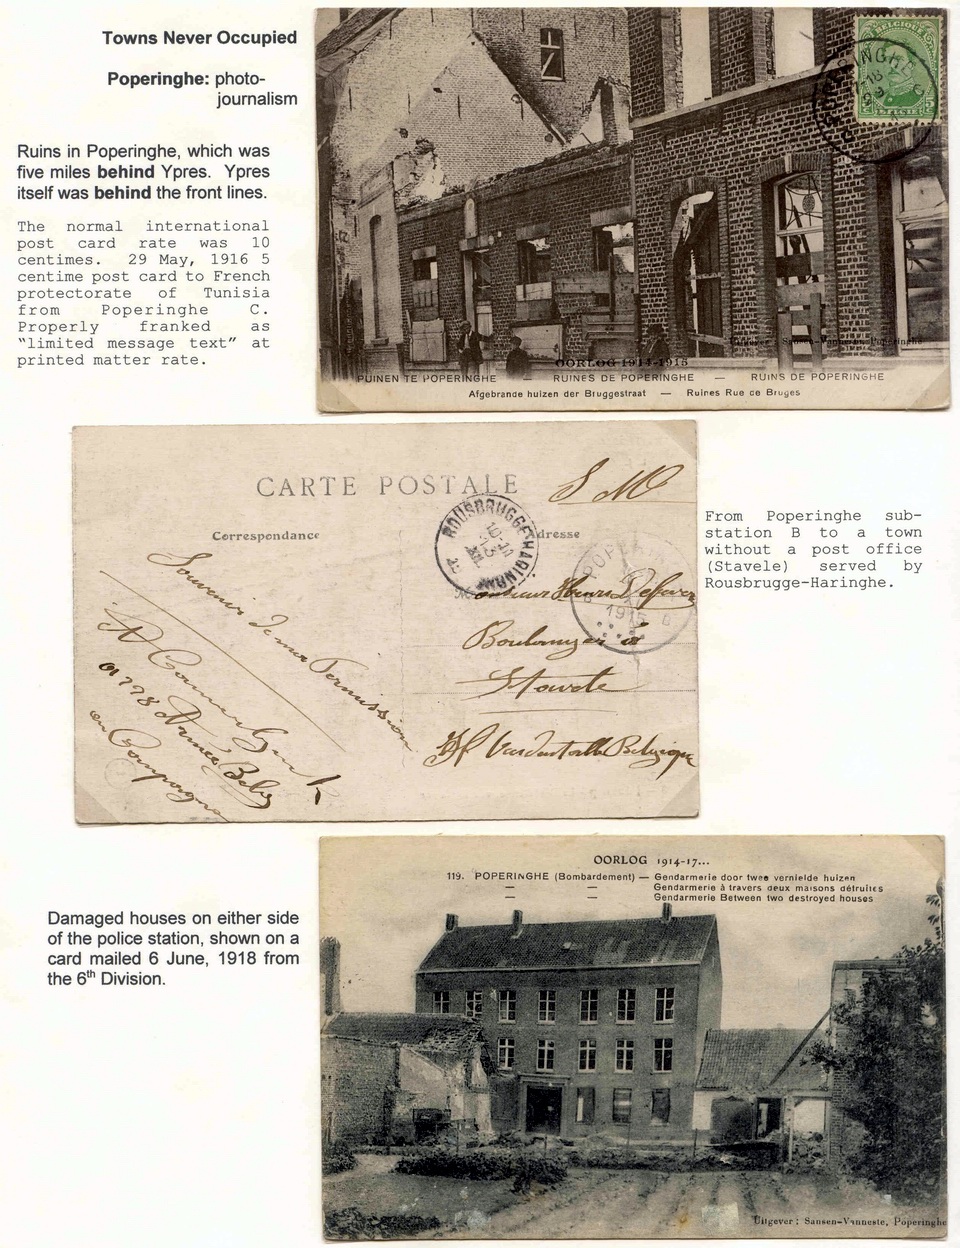 Towns Never Occupied
Poperinghe: photo-
journalism
Ruins in Poperinghe, which was
five miles behind Ypres. Ypres
itself was behind the front lines.
The normal international
post card rate was 10
centimes. 29 May, 1916 5
centime post card to French
protectorate of Tunisia
from Poperinghe C.
Properly franked as
"limited message text" at
printed matter rate.
OORLOG 1914-1915
PUINEN TE POPERINGHE — RUINES DE POPERINGHE — RUINS DE POPERINGHE
Afgebrande huizen der Bruggestraat — Ruines Rue de Bruges
CARTE POSTALE
S M
Correspondance
Adresse
ROUSBRUGGE-HARINGHE
1915
Souvenir de ma Permission
Boulanger à
Stavele
Belgique
en Campagne
From Poperinghe sub-
station B to a town
without a post office
(Stavele) served by
Rousbrugge-Haringhe.
OORLOG 1914-17...
119. POPERINGHE (Bombardement) — Gendarmerie door twee vernielde huizen
— — Gendarmerie à travers deux maisons détruites
— — Gendarmerie Between two destroyed houses
Damaged houses on either side
of the police station, shown on a
card mailed 6 June, 1918 from
the 6th Division.
Uitgever: Sansen-Vanneste, Poperinghe